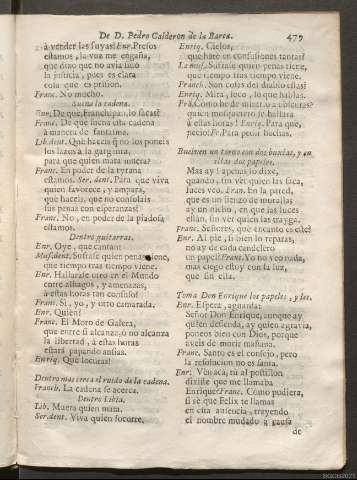 De D. Pedro Calderon de la Barca.
479
à vender las suyas? Enr. Presos
estamos, la voz me engaña,
que dixo que no avia sido
la justicia, pues es clara
cosa que es prision.
Franc. No mucho.
Suena la cadena.
Enr. De que, Francisco, lo sacas?
Franc. De que suena esta cadena
à manera de fantasma.
Lib. dent. Què haceis q no los poneis
los lazos à la garganta,
para que quien mata muera?
Franc. En poder de la tyrana
estamos. Ser. dent. Para que viva
quien favorece, y ampara,
què haceis, que no consolais
sus penas con esperanzas?
Franc. No, en poder de la piadosa
estamos.
Dentro guitarras.
Enr. Oye, que cantan
Mus. dent. Sufrase quien penas tiene,
que tiempo tras tiempo viene.
Enr. Hallarase otro en el Mundo
entre alhagos, y amenazas,
à estas horas tan confuso?
Franc. Si, yo, y otro camarada.
Enr. Quien?
Franc. El Moro de Galera,
que entre si alcanzo, ò no alcanza
la libertad, à estas horas
estarà papando ansias.
Enriq. Què locuras!
Dentro mas cerca el ruido de la cadena.
Francis. La cadena se acerca.
Dentro Libia.
Lib. Muera quien mata.
Ser. dent. Viva quien socorre.
Enriq. Cielos,
què harè en confusiones tantas?
La mus. Sufrase quien penas tiene,
que tiempo tras tiempo viene.
Franc. Son coles del diablo essas?
Enriq. Mira, loco, lo que hablas.
Frã. Como he de mirarlo à obscuras?
quien mosquetero se hallara
à estas horas! Enriq. Para què,
necio? Fr. Para pedir bucias.
Buelven un torno con dos bucias, y en
ellas dos papeles.
Mas ay! apenas lo dixe,
quando, sin ver quien las saca,
luces veo. Fran. En la pared,
que es un lienzo de murallas
ay un nicho, en que las luces
están, sin ver quien las trayga.
Franc. Señores, què encanto es este?
Enr. Al pie, si bien lo reparas,
no ay de cada candelero
un papel? Franc. Yo no veo nada,
mas ciego estoy con la luz,
que sin ella.
Toma Don Enrique los papeles, y lee.
Enr. Espera, aguarda:
Señor Don Enrique, aunque ay
quien defienda, ay quien agravia,
poneos bien con Dios, porque
aveis de morir mañana.
Franc. Santo es el consejo, pero
la resolucion no es santa.
Enr. Ven acà, tu al postillon
dixiste que me llamaba
Enrique? Franc. Como pudiera,
si sè que Felix te llamas
en esta ausencia, trayendo
el nombre mudado à causa
de